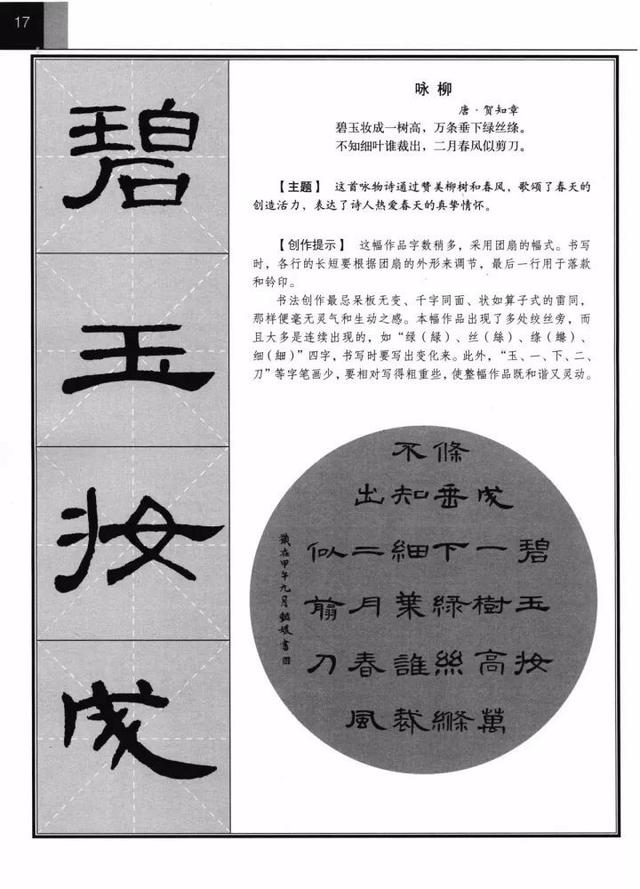 17
碧
玉
妆
成
咏 柳
唐·贺知章
碧玉妆成一树高，万条垂下绿丝绦。
不知细叶谁裁出，二月春风似剪刀。
【主题】 这首咏物诗通过赞美柳树和春风，歌颂了春天的
创造活力，表达了诗人热爱春天的真挚情怀。
【创作提示】 这幅作品字数稍多，采用团扇的幅式。书写
时，各行的长短要根据团扇的外形来调节，最后一行用于落款
和钤印。
书法创作最忌呆板无变、千字同面、状如算子式的雷同，
那样便毫无灵气和生动之感。本幅作品出现了多处绞丝旁，而
且大多是连续出现的，如“绿（緑）、丝（絲）、绦（縧）、
细（細）”四字，书写时要写出变化来。此外，“玉、一、下、二、
刀”等字笔画少，要相对写得粗重些，使整幅作品既和谐又灵动。
碧玉妆
成一樹高萬
條垂下緑絲縧
不知細葉誰裁
出二月春風
似翦刀
歲在甲午九月媛書